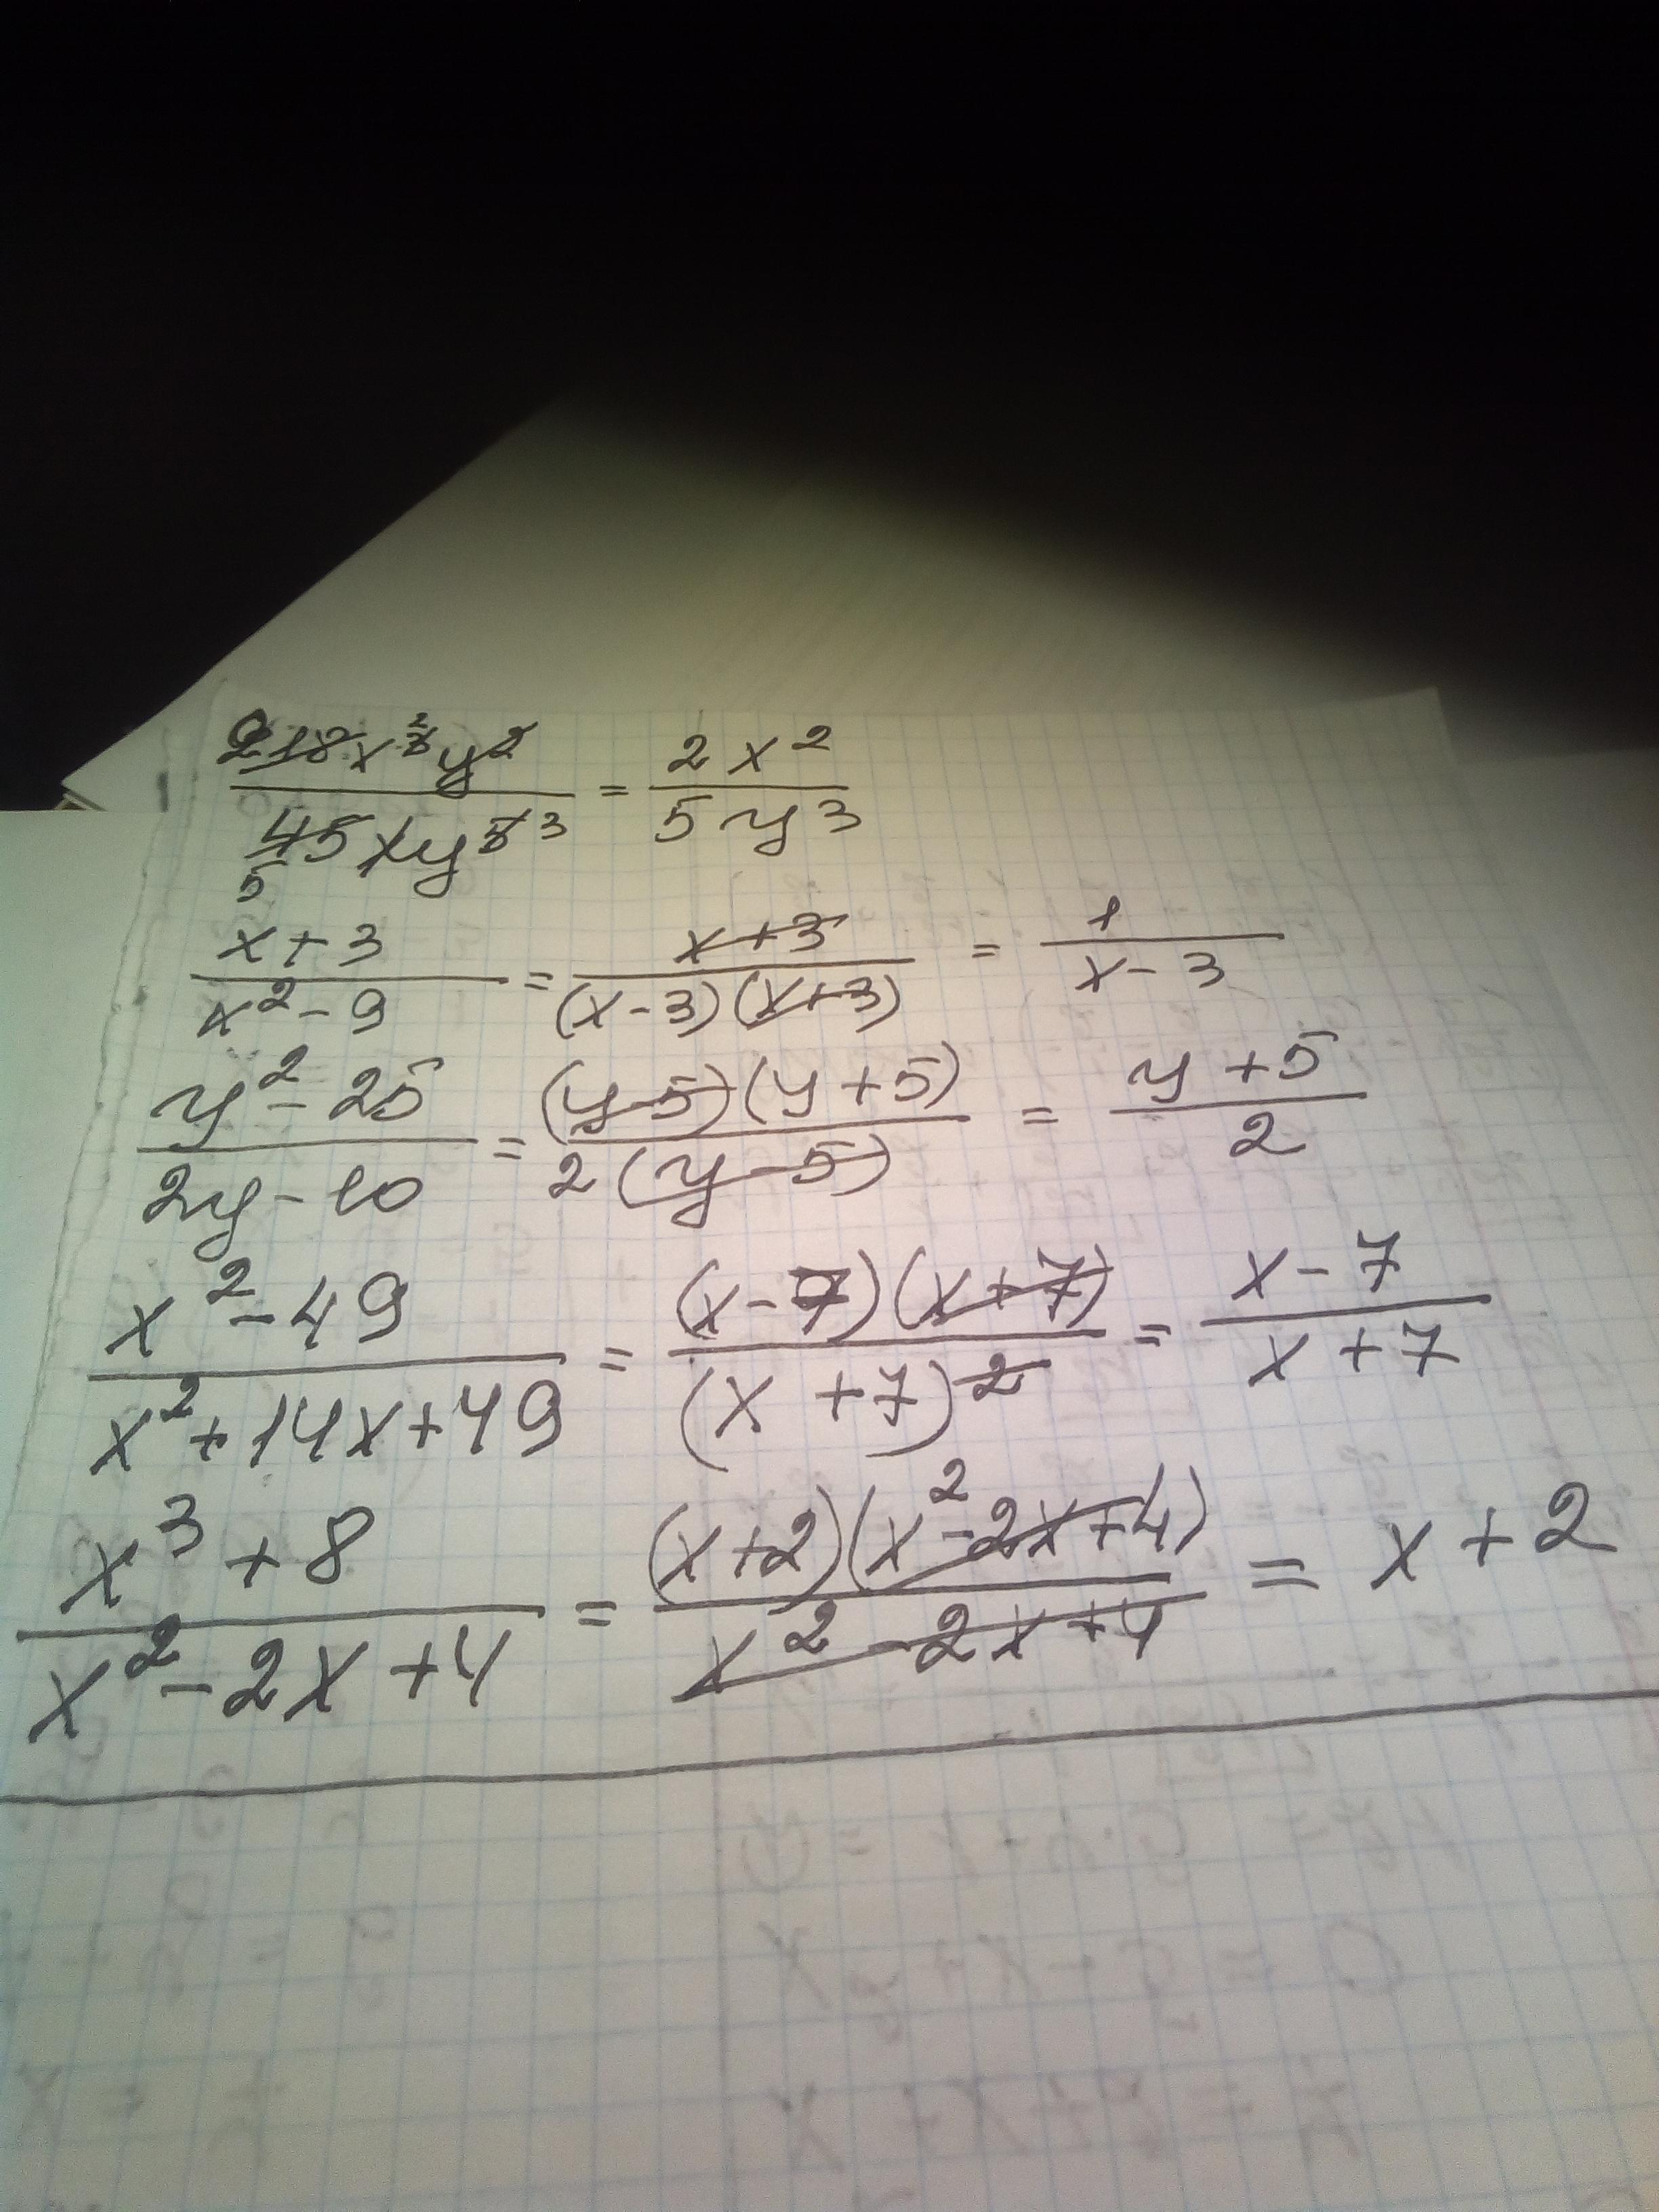 18x³y² / 45xy⁵ = 2x² / 5y³
x+3 / x²-9 = x+3 / (x-3)(x+3) = 1 / x-3
y²-25 / 2y-10 = (y-5)(y+5) / 2(y-5) = y+5 / 2
x²-49 / x²+14x+49 = (x-7)(x+7) / (x+7)² = x-7 / x+7
x³+8 / x²-2x+4 = (x+2)(x²-2x+4) / x²-2x+4 = x+2